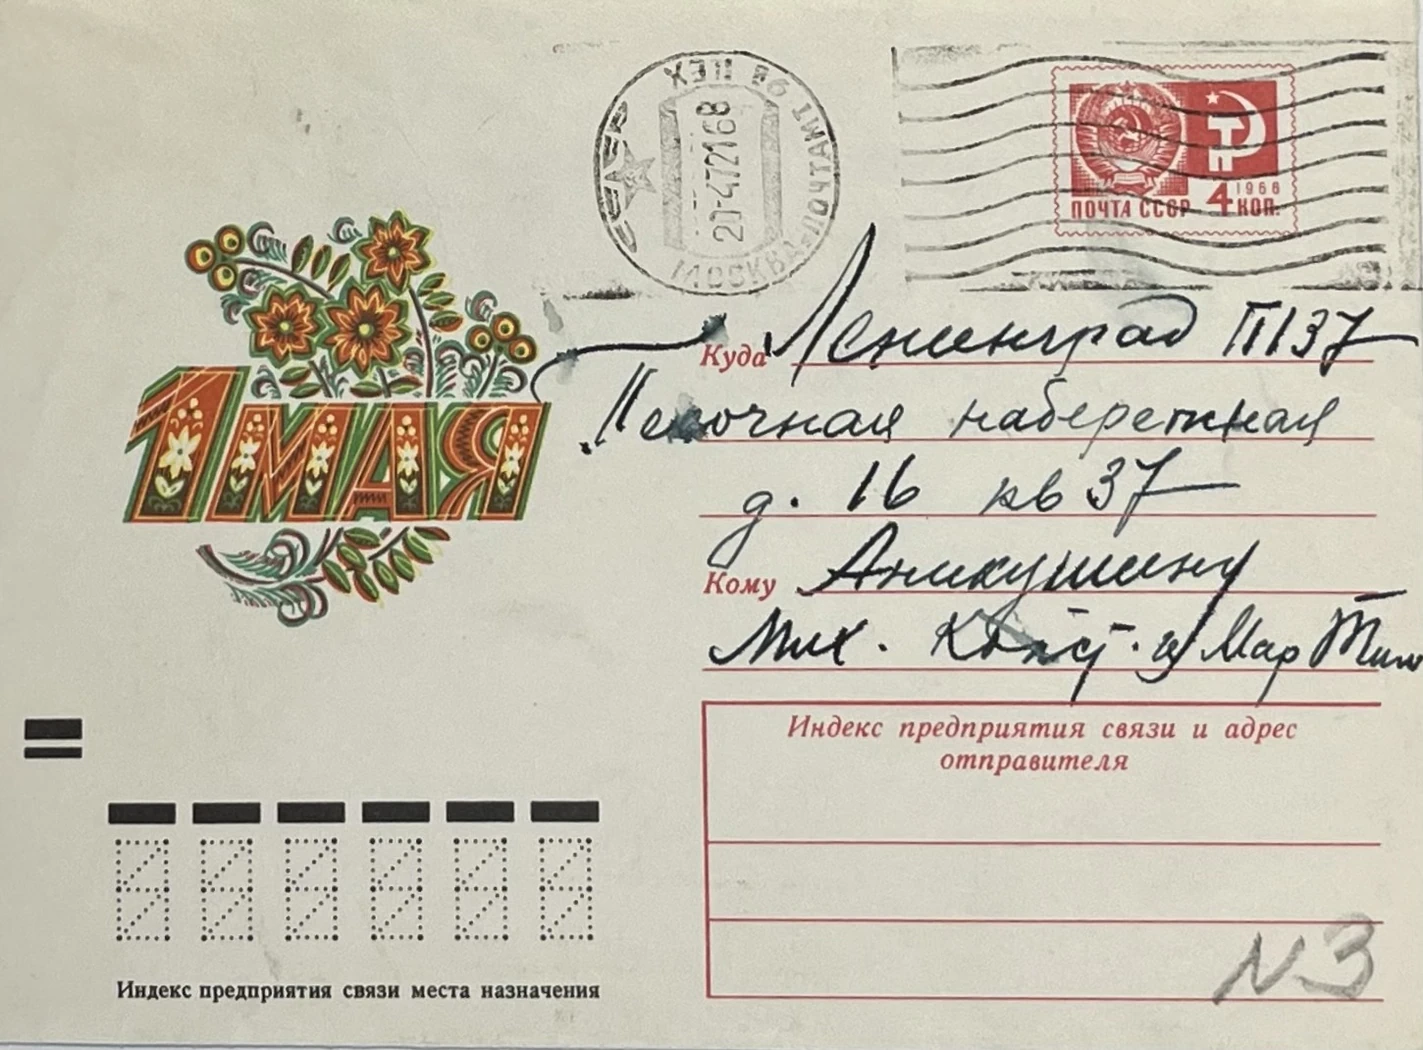 СССР
МОСКВА-ПОЧТАМТ
ЦЕХ
20-4722168
1966
ПОЧТА СССР 4 КОП.
1 МАЯ
Куда Ленинград П137
Песочная набережная
д. 16 кв 37
Кому Аникушину
Мих. Конст. и Мар Тим
Индекс предприятия связи и адрес
отправителя
Индекс предприятия связи места назначения
N 3